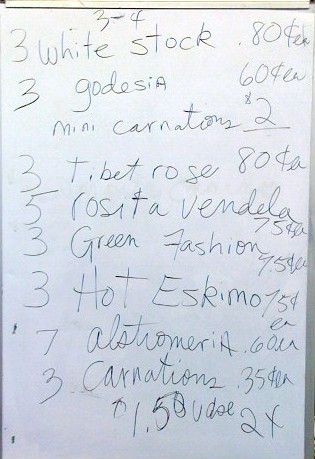 3-4
3 white stock .80¢ea
3 godesia 60¢ea
mini carnations $2
3 Tibet rose 80¢ea
5 rosita vendela 75¢ea
3 Green Fashion 75¢ea
3 Hot Eskimo 75¢ ea
7 alstromeria .60ea
3 Carnations .35¢ea
1.50 2x